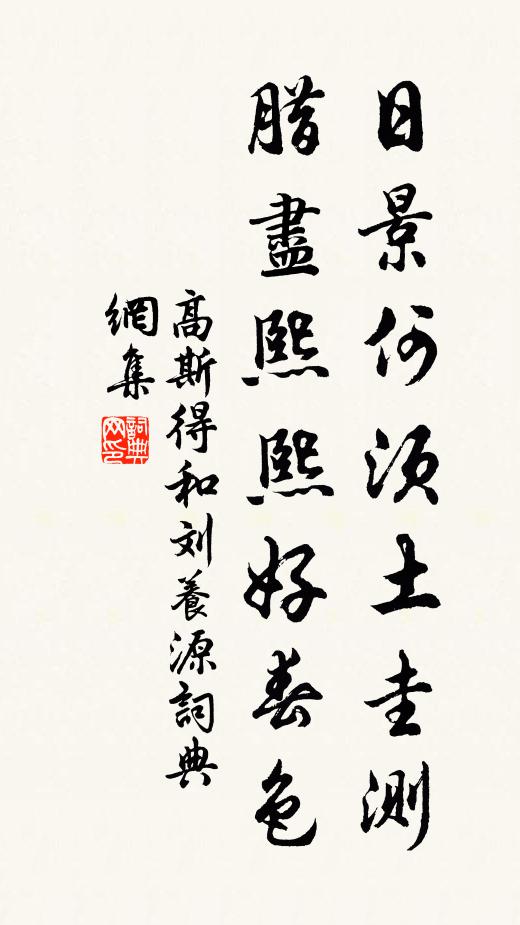 日景何須土圭測
腊盡熙熙好春色
高斯得和刘養源詞典
網集
詞典
网印